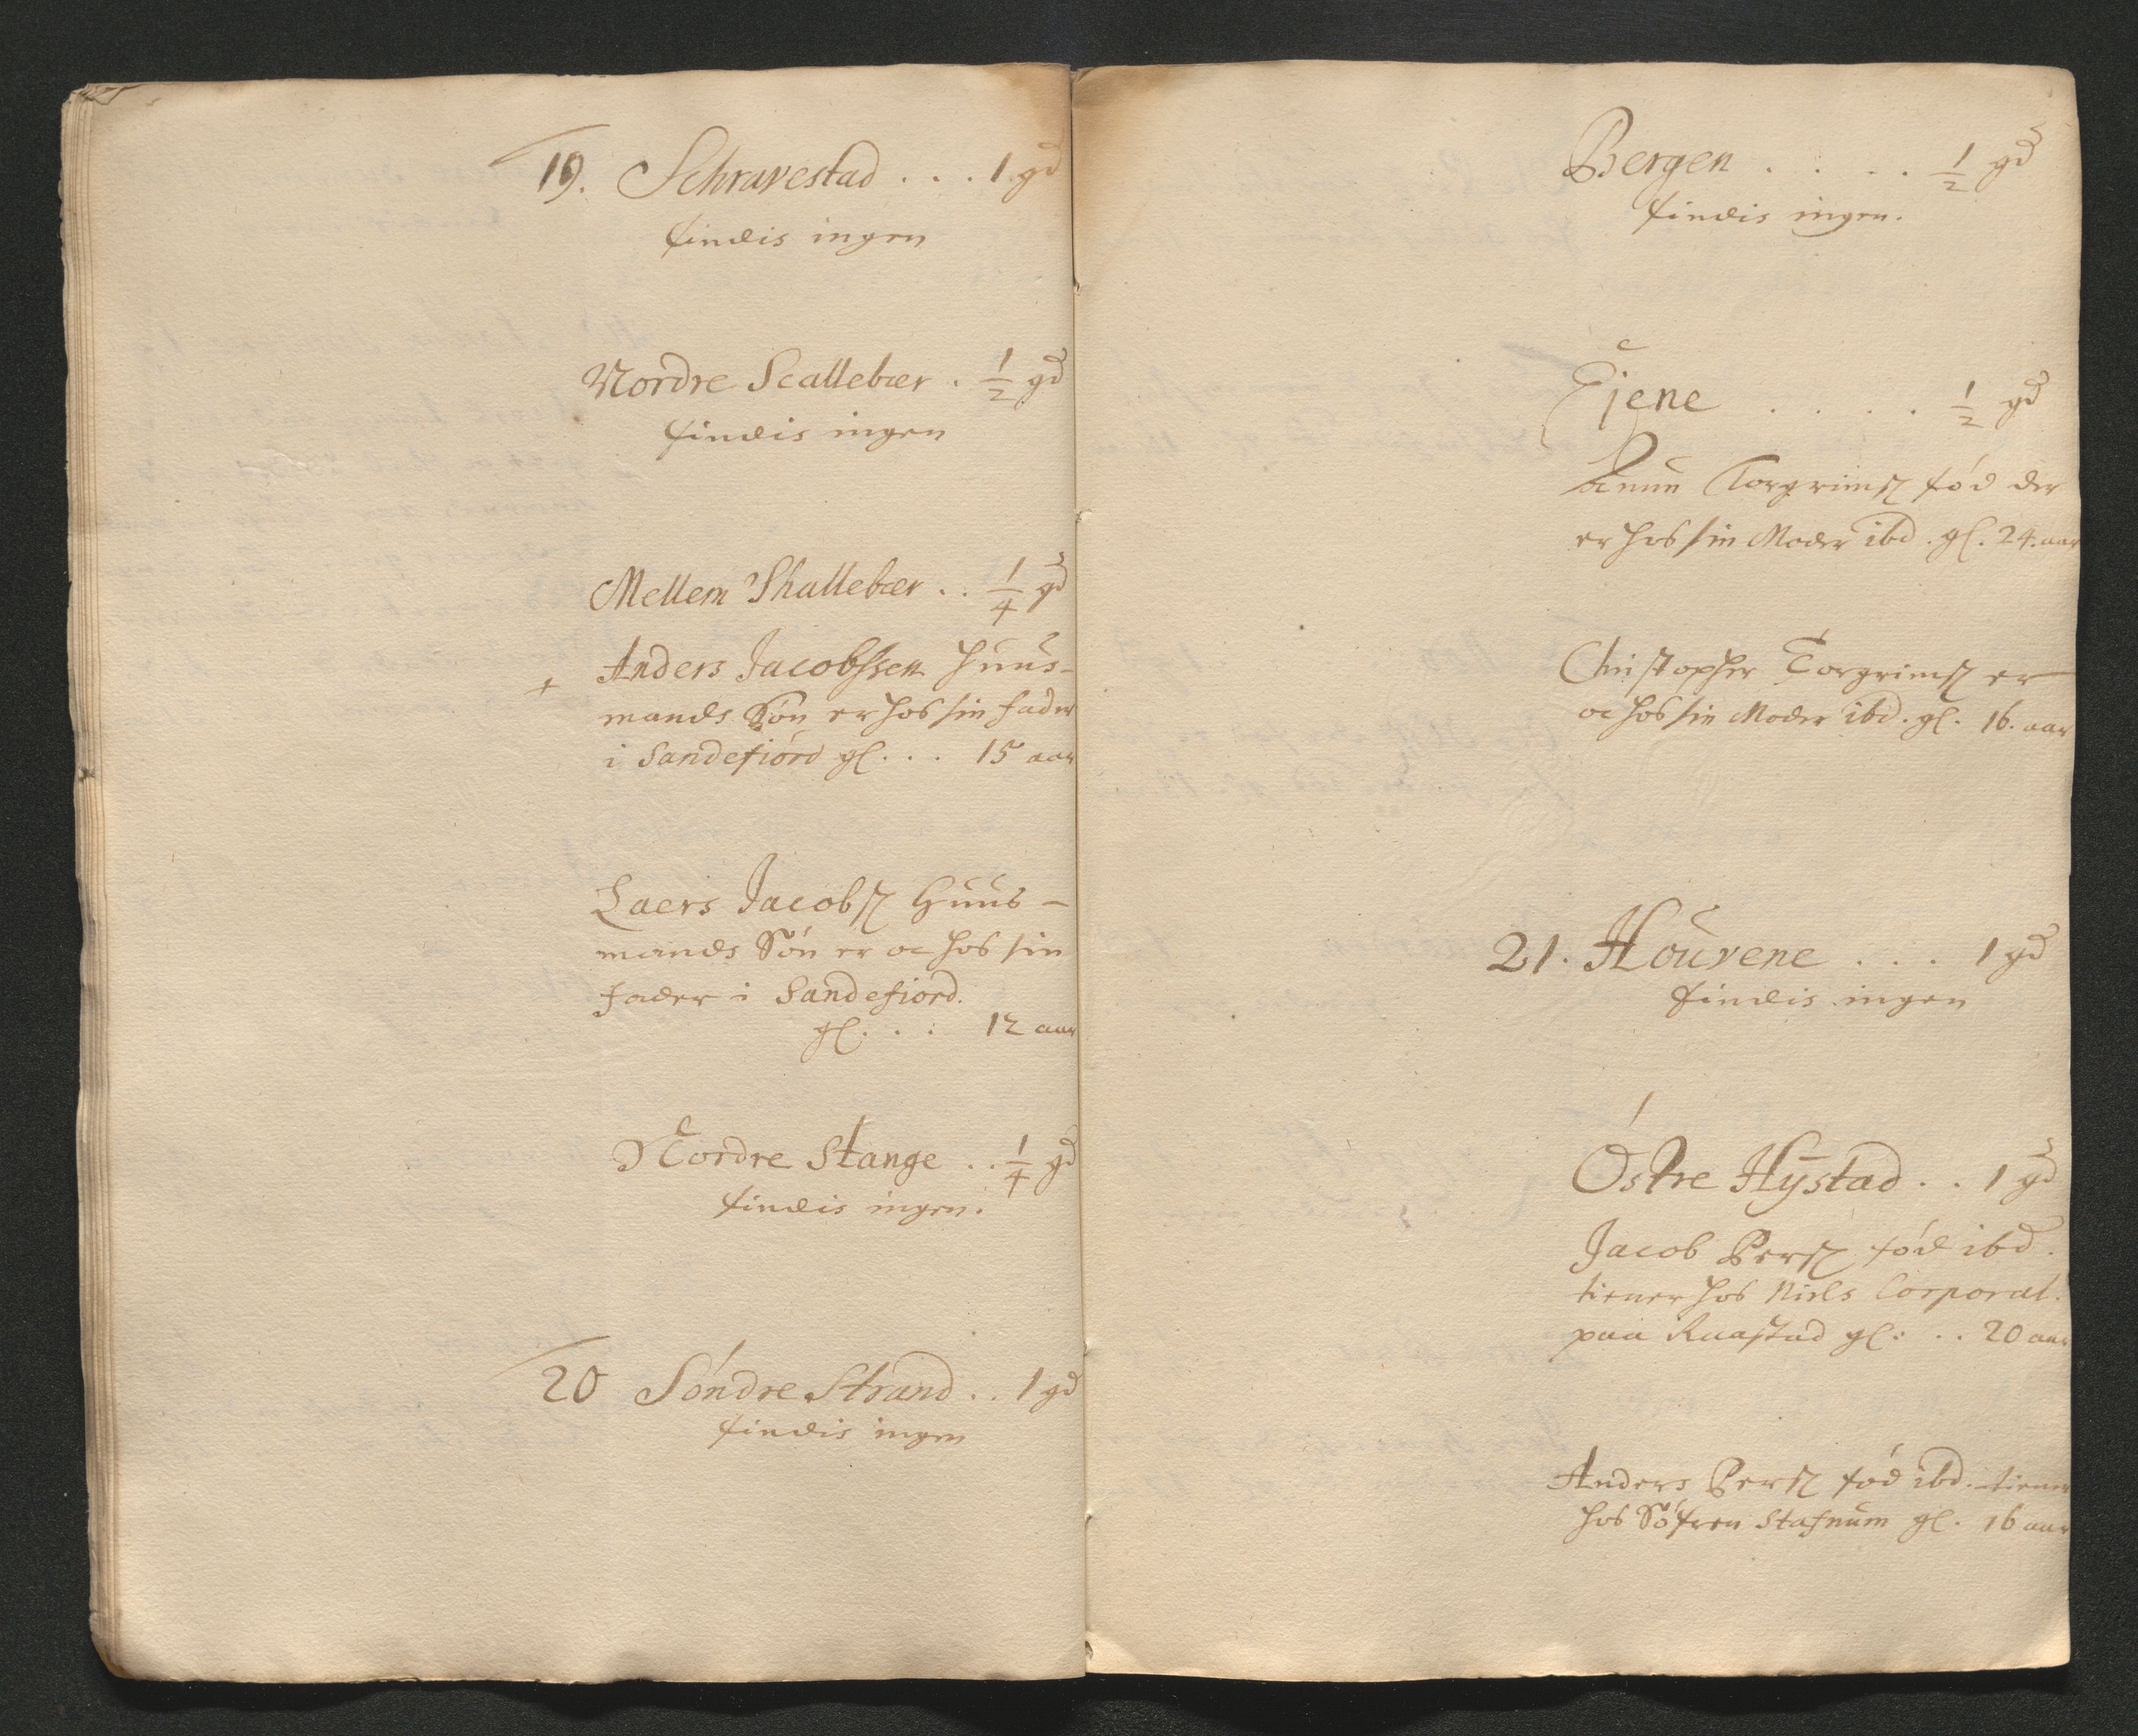 19. Schravestad . . . 1 gd
findis ingen
Nordre Scallebær . 1/2 gd
findis ingen
Mellem Skallebær . . 1/4 gd
+ Anders Jacobssen Huus-
mands Søn er hos sin fader
i Sandefiórd gl. . . 15 aar
Laers Jacobs. Huus-
mands Søn er oc hos sin
fader i Sandefiord.
gl. . . 12 aar
Nordre Stange . . 1/4 gd
findis ingen.
20 Søndre Strand . . 1 gd
findis ingen
Bergen . . . . 1/2 gd
findis ingen.
Ejene . . . . 1/2 gd
Torgrims. fød der
er hos sin Moder ibd. gl. 24. aar
Christopher Torgrims. er
oc hos sin Moder ibd. gl. 16. aar
21. Houvene . . . 1 gd
findis ingen
Østre Hÿstad . . 1 gd
Jacob Pers. fød ibd.
tiener hos Niels Corporal.
paa Raastad gl. . . 20 aar
Anders Pers. fød ibd. tiener
hos Søfren Stafnum gl. 16 aar